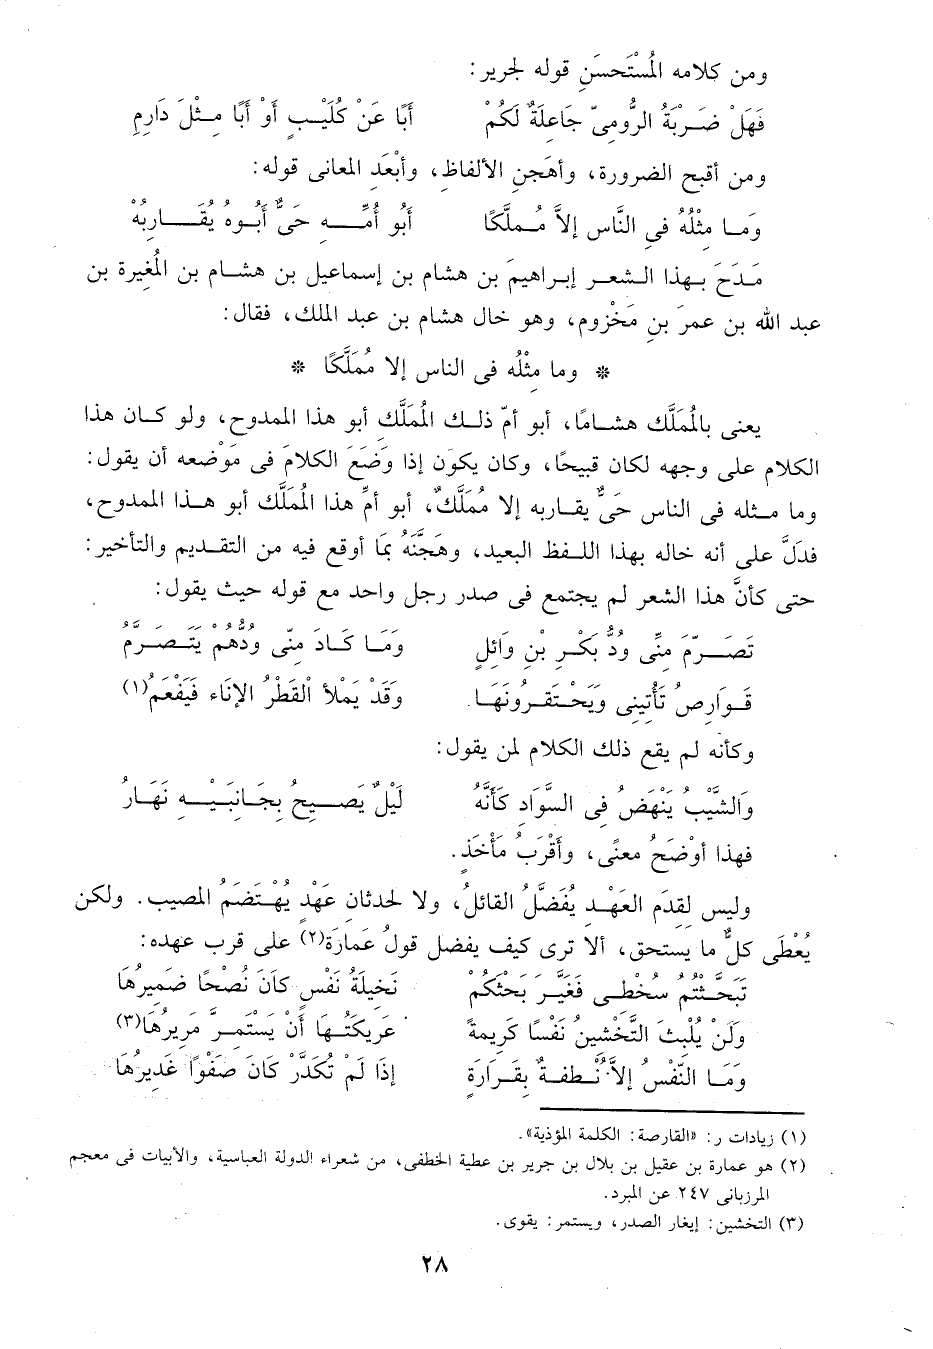 ومن كلامه المُسْتَحسَنِ قوله لجرير:
فَهَلْ ضَرْبَةُ الرُّومِىِّ جَاعِلَةٌ لَكُمْ أَبًا عَنْ كُلَيْبٍ أَوْ أَبًا مِثْلَ دَارِمِ
ومن أقبح الضرورة، وأهَجنِ الألفاظ، وأبْعَدِ المعانى قوله:
وَمَا مِثْلُهُ فى النَّاس إلاَّ مُملَّكًا أبو أُمِّهِ حَىٌّ أَبُوه يُقَارِبُهْ
مَدَحَ بهذا الشعر إبراهيمَ بن هشام بن إسماعيل بن هشام بن المُغِيرة بن
عبد الله بن عمرَ بنِ مَخْزوم، وهو خال هشام بن عبد الملك، فقال:
* وما مثْلُه فى الناس إلا مُمَلَّكًا *
يعنى بالمُمَلَّك هشامًا، أبو أمّ ذلك المُملَّكِ أبو هذا الممدوح، ولو كان هذا
الكلام على وجهه لكان قبيحًا، وكان يكون إذا وَضَعَ الكلامَ فى مَوْضعه أن يقول:
وما مثله فى الناس حَىٌّ يقاربه إلا مُمَلَّكٌ، أبو أمِّ هذا المُملَّك أبو هذا الممدوح،
فدَلَّ على أنه خاله بهذا اللفظ البعيد، وهَجَّنَهُ بمَا أوقع فيه من التقديم والتأخير:
حتى كأنَّ هذا الشعر لم يجتمع فى صدر رجل واحد مع قوله حيث يقول:
تَصَرَّمَ مِنِّى وُدُّ بَكْرِ بْنِ وَائِلٍ وَمَا كَادَ مِنِّى وُدُّهُمْ يَتَصَرَّمُ
قَوَارِصُ تَأْتِينِى وَيَحْتَقِرُونَهَا وَقَدْ يَمْلأُ الْقَطْرُ الإِنَاء فَيَفْعَمُ(١)
وكأنه لم يقع ذلك الكلام لمن يقول:
وَالشَّيْبُ يَنْهَضُ فى السَّوَادِ كَأَنَّهُ لَيْلٌ يَصيحُ بِجَانِبَيْهِ نَهَارُ
فهذا أوْضَحُ معنًى، وأَقْرَبُ مَأْخَذٍ.
وليس لِقِدَمِ العَهْدِ يُفَضَّلُ القائلُ، ولا لحدثان عَهْدٍ يُهْتَضَمُ المصيب. ولكن
يُعْطَى كلٌّ ما يستحق، ألا ترى كيف يفضل قولُ عَمارَة(٢) على قرب عهده:
تَبَحَّثْتُمُ سُخْطِى فَغَيَّرَ بَحْثُكُمْ نَخِيلَةُ نَفْسٍ كَانَ نُصْحًا ضَمِيرُهَا
وَلَنْ يُلْبِثَ التَّخْشِينُ نَفْسًا كَرِيمةً عَرِيكَتُهَا أَنْ يَسْتَمِرَّ مَرِيرُهَا(٣)
وَمَا النّفْسُ إلاَّ نُطْفَةٌ بِقَرَارَةٍ إذَا لَمْ تُكَدَّرْ كَانَ صَفْوًا غَدِيرُهَا
(١) زيادات ر: «القارصة: الكلمة المؤذية».
(٢) هو عمارة بن عقيل بن بلال بن جرير بن عطية الخطفى، من شعراء الدولة العباسية، والأبيات فى معجم
المرزبانى ٢٤٧ عن المبرد.
(٣) التخشين: إيغار الصدر، ويستمر: يقوى.
٢٨